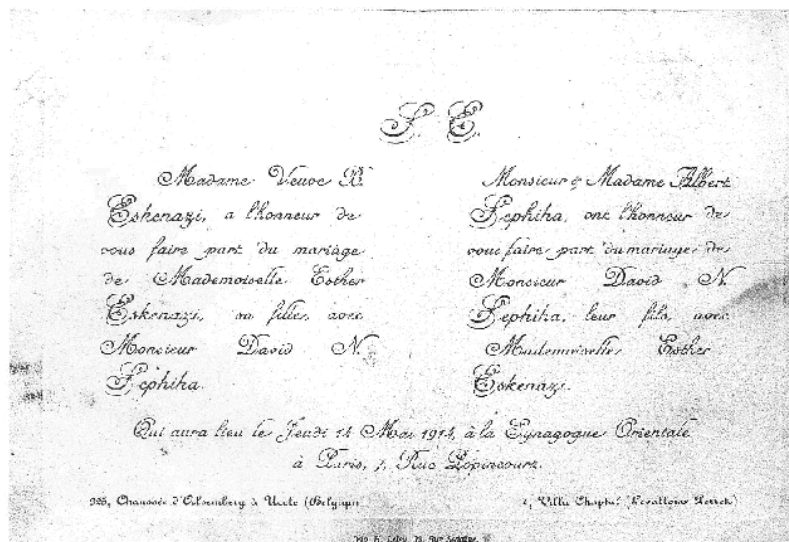 S E
Madame Veuve B.
Eskenazi, a l'honneur de
vous faire part du mariage
de Mademoiselle Esther
Eskenazi, sa fille, avec
Monsieur David N.
Sephiha.
Monsieur & Madame Albert
Sephiha, ont l'honneur de
vous faire part du mariage de
Monsieur David N.
Sephiha, leur fils, avec
Mademoiselle Esther
Eskenazi.
Qui aura lieu le Jeudi 14 Mai 1914, à la Synagogue Orientale
à Paris, 7, Rue Popincourt.
Chaussée d'Alsemberg à Uccle (Belgique)
Villa Chaptal (Levallois Perret)